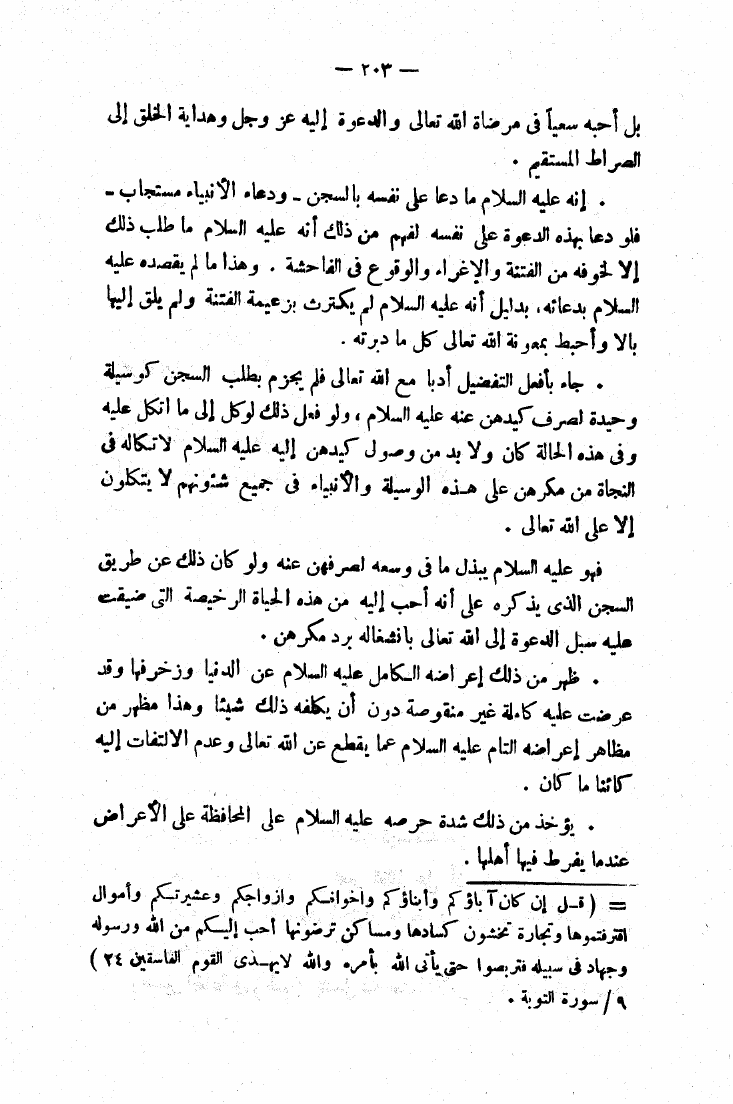 — ٢٠٣ —
بل أحبه سعياً فى مرضاة الله تعالى والدعوة إليه عز وجل وهداية الخلق إلى
الصراط المستقيم .
. إنه عليه السلام ما دعا على نفسه بالسجن ـ ودعاء الأنبياء مستجاب ـ
فلو دعا بهذه الدعوة على نفسه لفهم من ذلك أنه عليه السلام ما طلب ذلك
إلا لخوفه من الفتنة والإغراء والوقوع فى الفاحشة . وهذا ما لم يقصده عليه
السلام بدعائه، بدليل أنه عليه السلام لم يكترث بزعيمة الفتنة ولم يلق إليها
بالا وأحبط بمعونة الله تعالى كل ما دبرته .
. جاء بأفعل التفضيل أدبا مع الله تعالى فلم يجزم بطلب السجن كوسيلة
وحيدة لصرف كيدهن عنه عليه السلام ، ولو فعل ذلك لوكل إلى ما اتكل عليه
وفى هذه الحالة كان ولا بد من وصول كيدهن إليه عليه السلام لاتكاله فى
النجاة من مكرهن على هذه الوسيلة والأنبياء فى جميع شئونهم لا يتكلون
إلا على الله تعالى .
فهو عليه السلام يبذل ما فى وسعه لصرفهن عنه ولو كان ذلك عن طريق
السجن الذى يذكره على أنه أحب إليه من هذه الحياة الرخيصة التى ضيقت
عليه سبل الدعوة إلى الله تعالى بانشغاله برد مكرهن .
. ظهر من ذلك إعراضه الكامل عليه السلام عن الدنيا وزخرفها وقد
عرضت عليه كاملة غير منقوصة دون أن يكلفه ذلك شيئا وهذا مظهر من
مظاهر إعراضه التام عليه السلام عما يقطع عن الله تعالى وعدم الالتفات إليه
كائنا ما كان .
. يؤخذ من ذلك شدة حرصه عليه السلام على المحافظة على الأعراض
عندما يفرط فيها أهلها .
= ( قل إن كان آباؤكم وأبناؤكم واخوانكم وازواجكم وعشيرتكم وأموال
اقترفتموها وتجارة تخشون كسادها ومساكن ترضونها أحب إليكم من الله ورسوله
وجهاد فى سبيله فتربصوا حتى يأتى الله بأمره والله لايهدى القوم الفاسقين ٢٤ )
٩ / سورة التوبة .